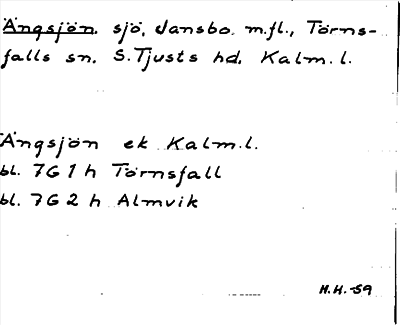 Ängsjön, sjö, Jansbo. m.fl., Törns-
falls sn. S.Tjusts hd. Kalm.l.
Ängsjön ek Kalm.l.
bl. 7G 1 h Törnsfall
bl. 7G 2 h Almvik
H.H.-59